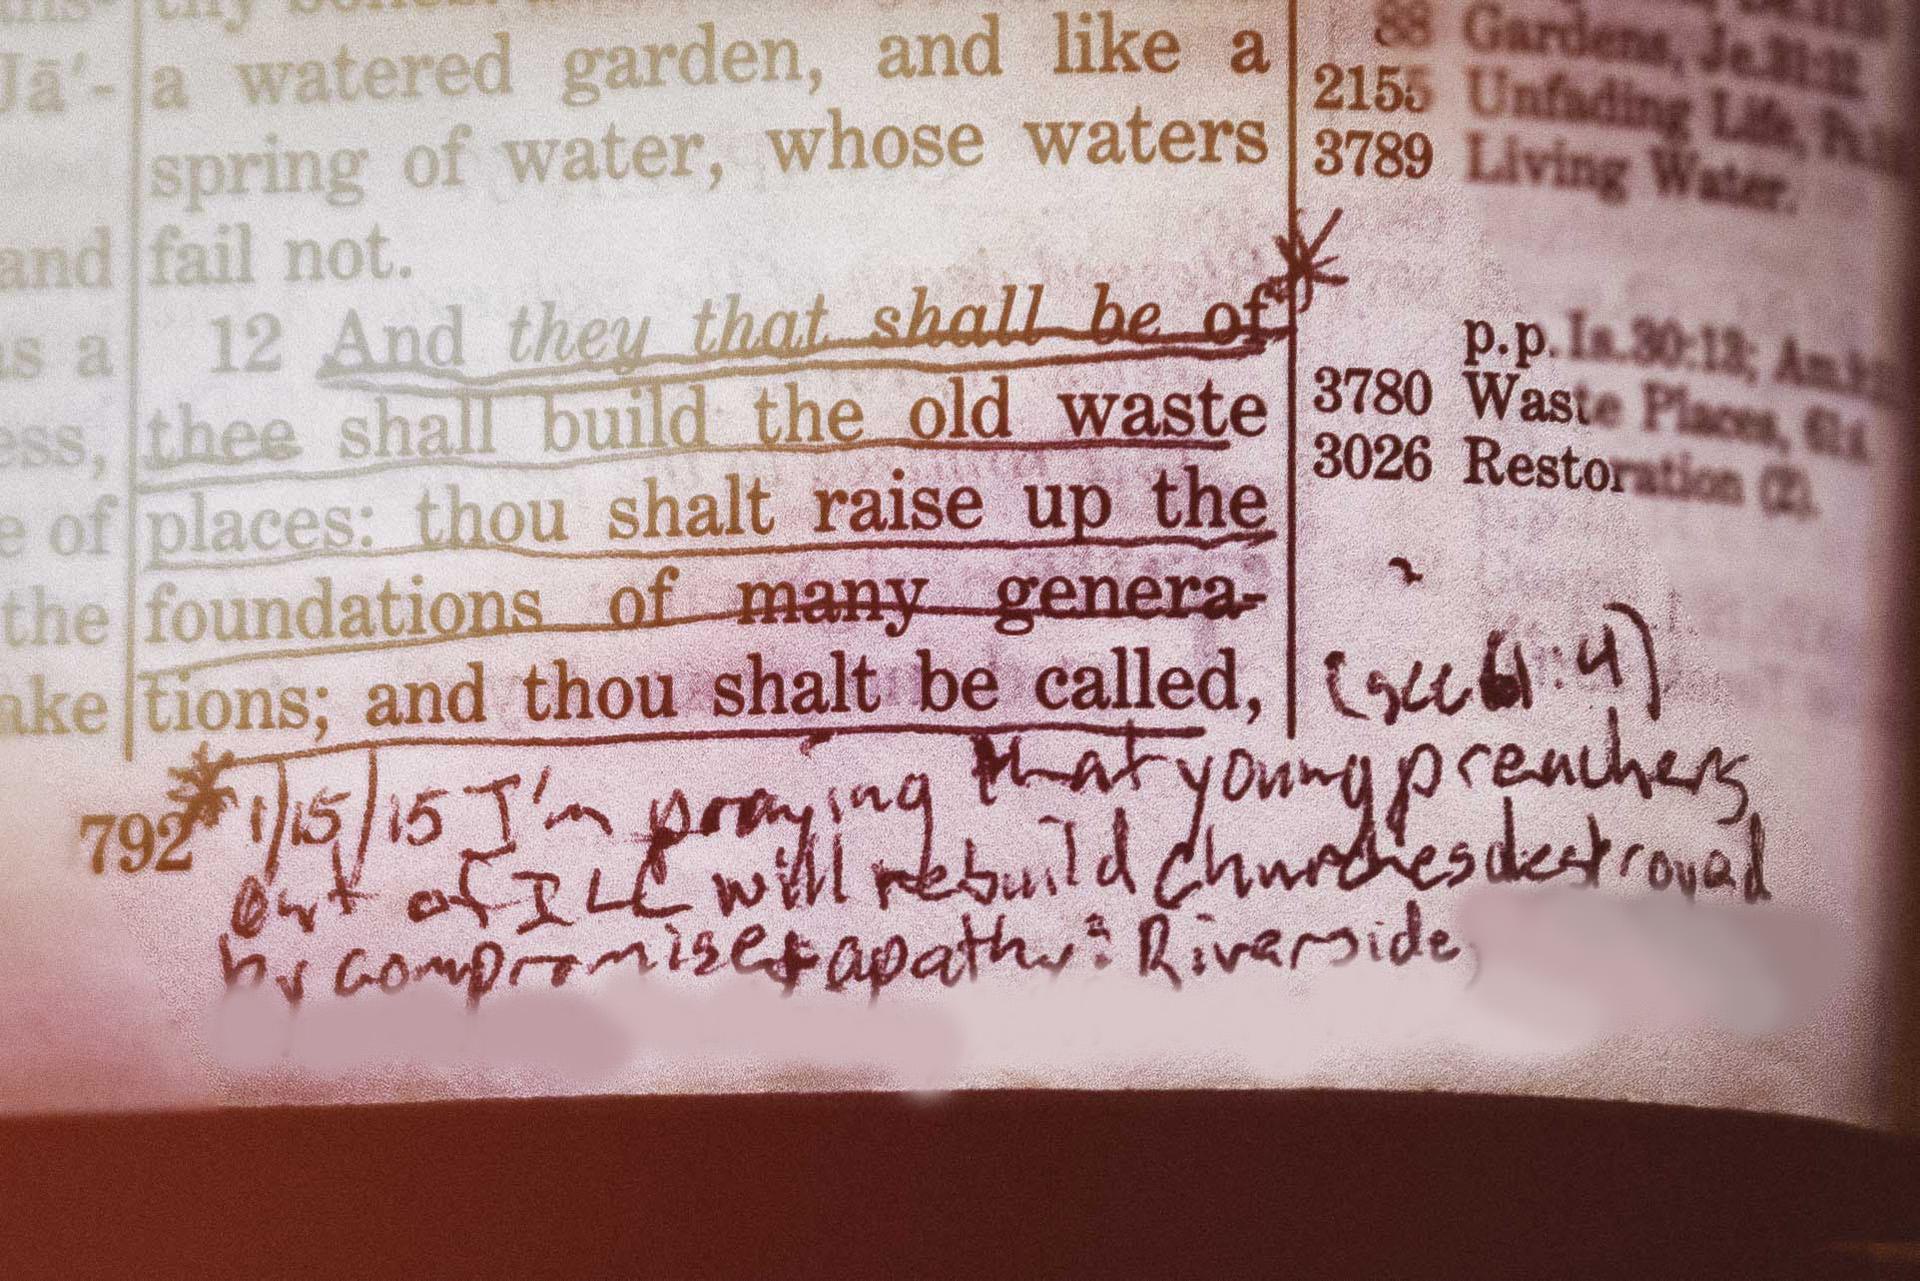 thy bones:
Jā′- a watered garden, and like a
spring of water, whose waters
and fail not.
as a 12 And they that shall be of
ess, thee shall build the old waste
e of places: thou shalt raise up the
the foundations of many genera-
ake tions; and thou shalt be called,
88 Gardens, Je.31:12
2155 Unfading Life, Ps.
3789 Living Water.
p.p. Is.30:13; Am.
3780 Waste Places, 61:4
3026 Restoration (2).
(see 61:4)
792 * 1/15/15 I'm praying that young preachers
out of ILC will rebuild churches destroyed
by compromise + apathy: Riverside,